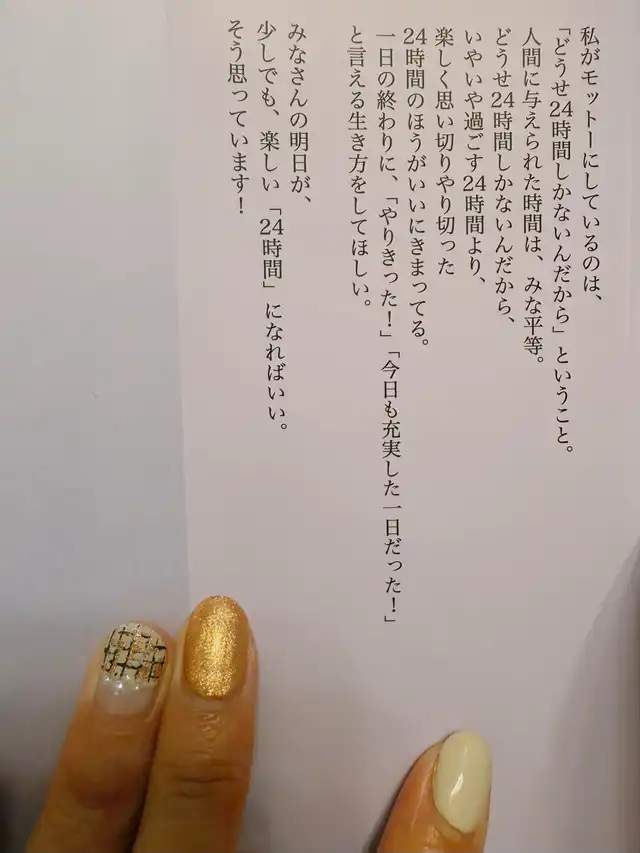 私がモットーにしているのは、
「どうせ24時間しかないんだから」ということ。
人間に与えられた時間は、みな平等。
どうせ24時間しかないんだから、
いやいや過ごす24時間より、
楽しく思い切りやり切った
24時間のほうがいいにきまってる。
一日の終わりに、「やりきった！」「今日も充実した一日だった！」
と言える生き方をしてほしい。
みなさんの明日が、
少しでも、楽しい「24時間」になればいい。
そう思っています！